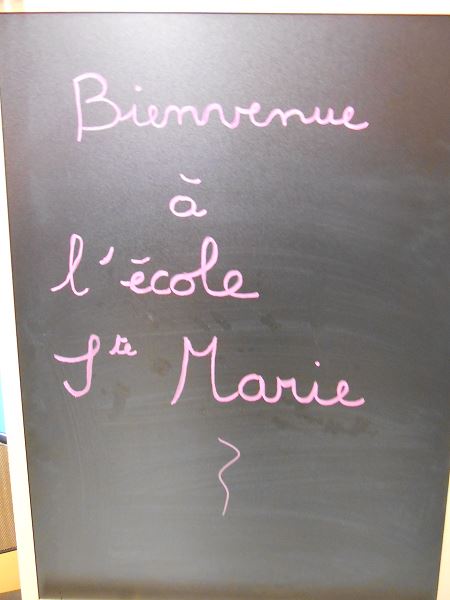 Bienvenue
à
l'école
Ste Marie